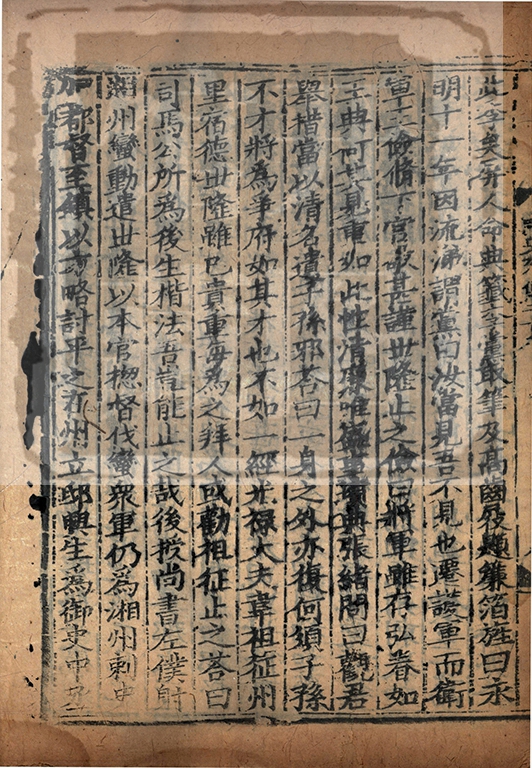 此季矣屏人命典籤李黨取筆及高齒屐題簾箔旌曰永
明十一年因流涕謂黨曰汝當見吾不見也遷護軍而衛
軍王儉脩下官敬甚謹世隆止之儉曰將軍雖存弘眷如
王典何其見重如此性清廉唯盛事墳典張緒問曰觀君
舉措當以清名遺子孫邪荅曰一身之外亦復何須子孫
不才將為爭府如其才也不如一經光祿大夫韋祖征州
里宿德世隆雖已貴重每為之拜人或勸祖征止之荅曰
司馬公所為後生楷法吾豈能止之哉後授尚書左僕射
湘州蠻動遣世隆以本官揔督伐蠻衆軍仍為湘州刺史
加都督至鎮以方略討平之在州立邸興生為御史中